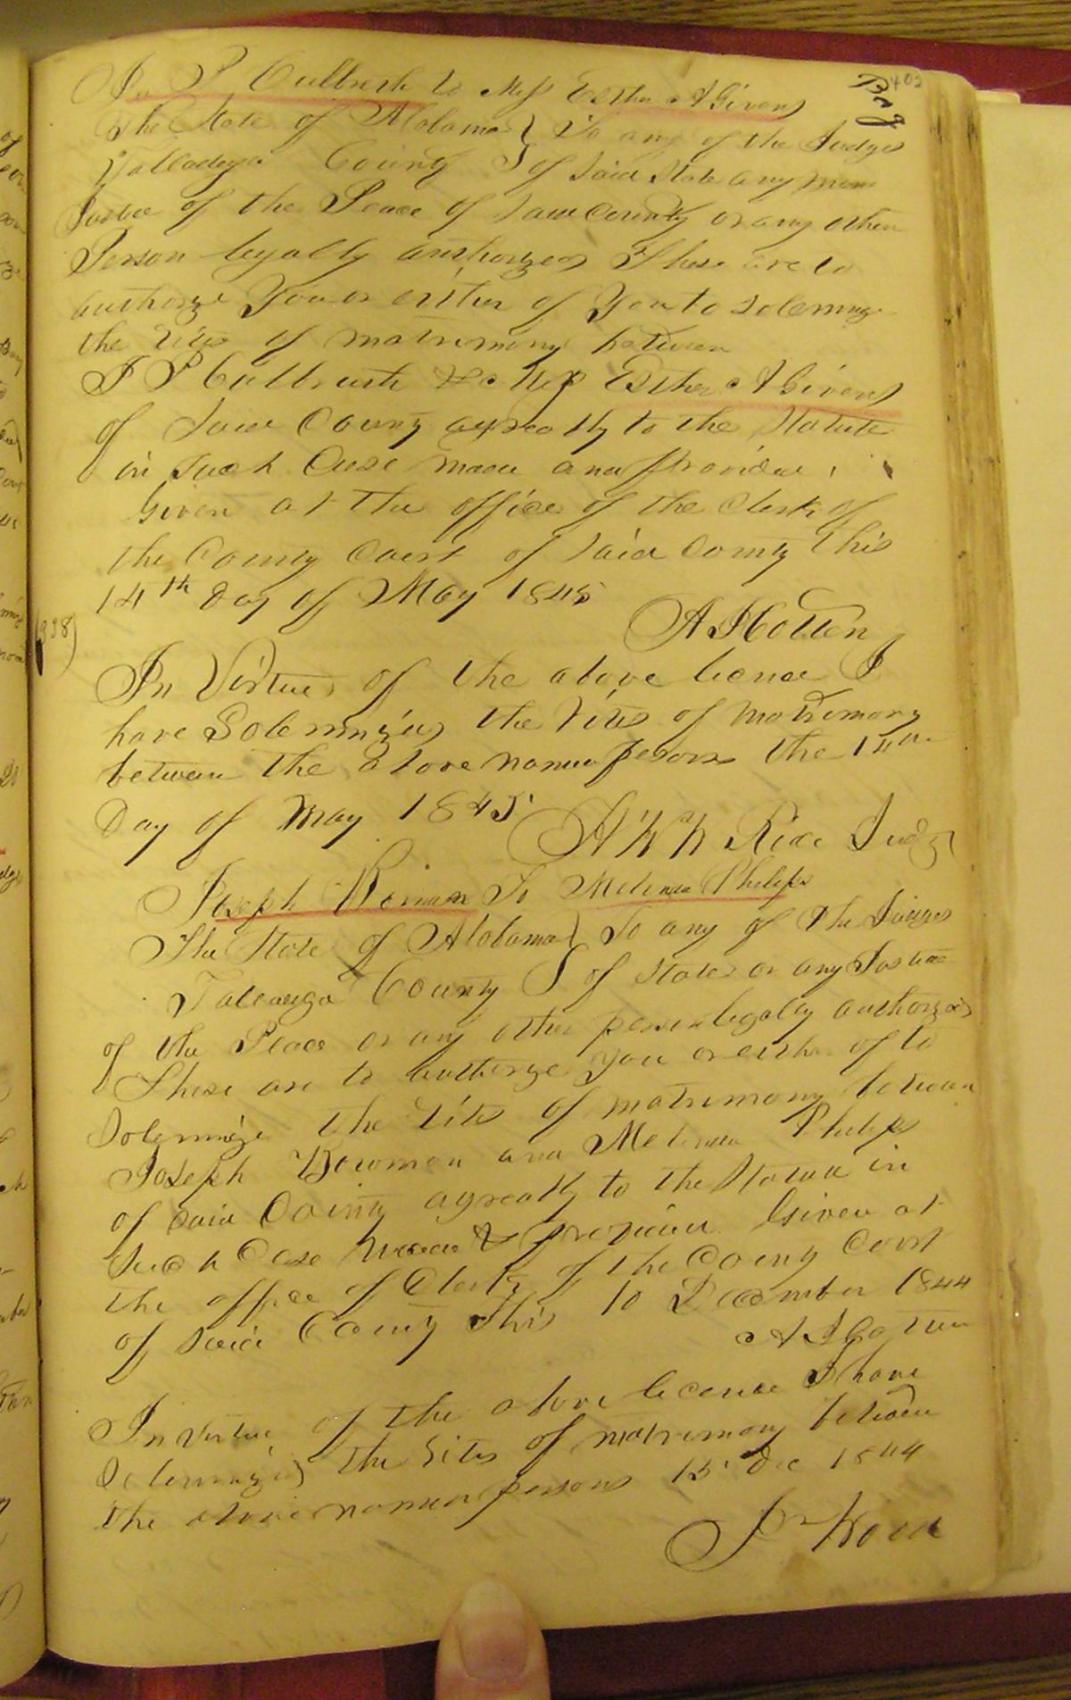 402
Pag
J P Culbreth to Miss Esther A Givens
The State of Alabama } To any of the Judges
Talladega County } of said State any
Justice of the Peace of said County or any other
Person legally authorized These are to
authorize You or either of You to solemnize
the rites of matrimony between
J P Culbreath & Miss Esther A Givens
of said County agreeably to the Statute
in such Case made and provided.
Given at the office of the Clerk of
the County Court of said County this
14th Day of May 1845
A J Cotten
In Virtue of the above licence I
have Solemnized the rites of matrimony
between the above named persons the 14th
Day of May 1845
Rice Judge
Joseph to Melinda Philips
The State of Alabama } To any of the Judges
Talladega County } of State or any Justice
of the Peace or any other person legally authorized
These are to authorize you or either of to
Solemnize the rites of matrimony between
Joseph Bowman and Melinda Philips
of said County agreeably to the Statute in
such Case made & provided Given at
the office of Clerk of the County Court
of said County this 10 December 1844
A J Cotten
In virtue of the above licence I have
Solemnized the rites of matrimony between
the above named persons 15 Dec 1844